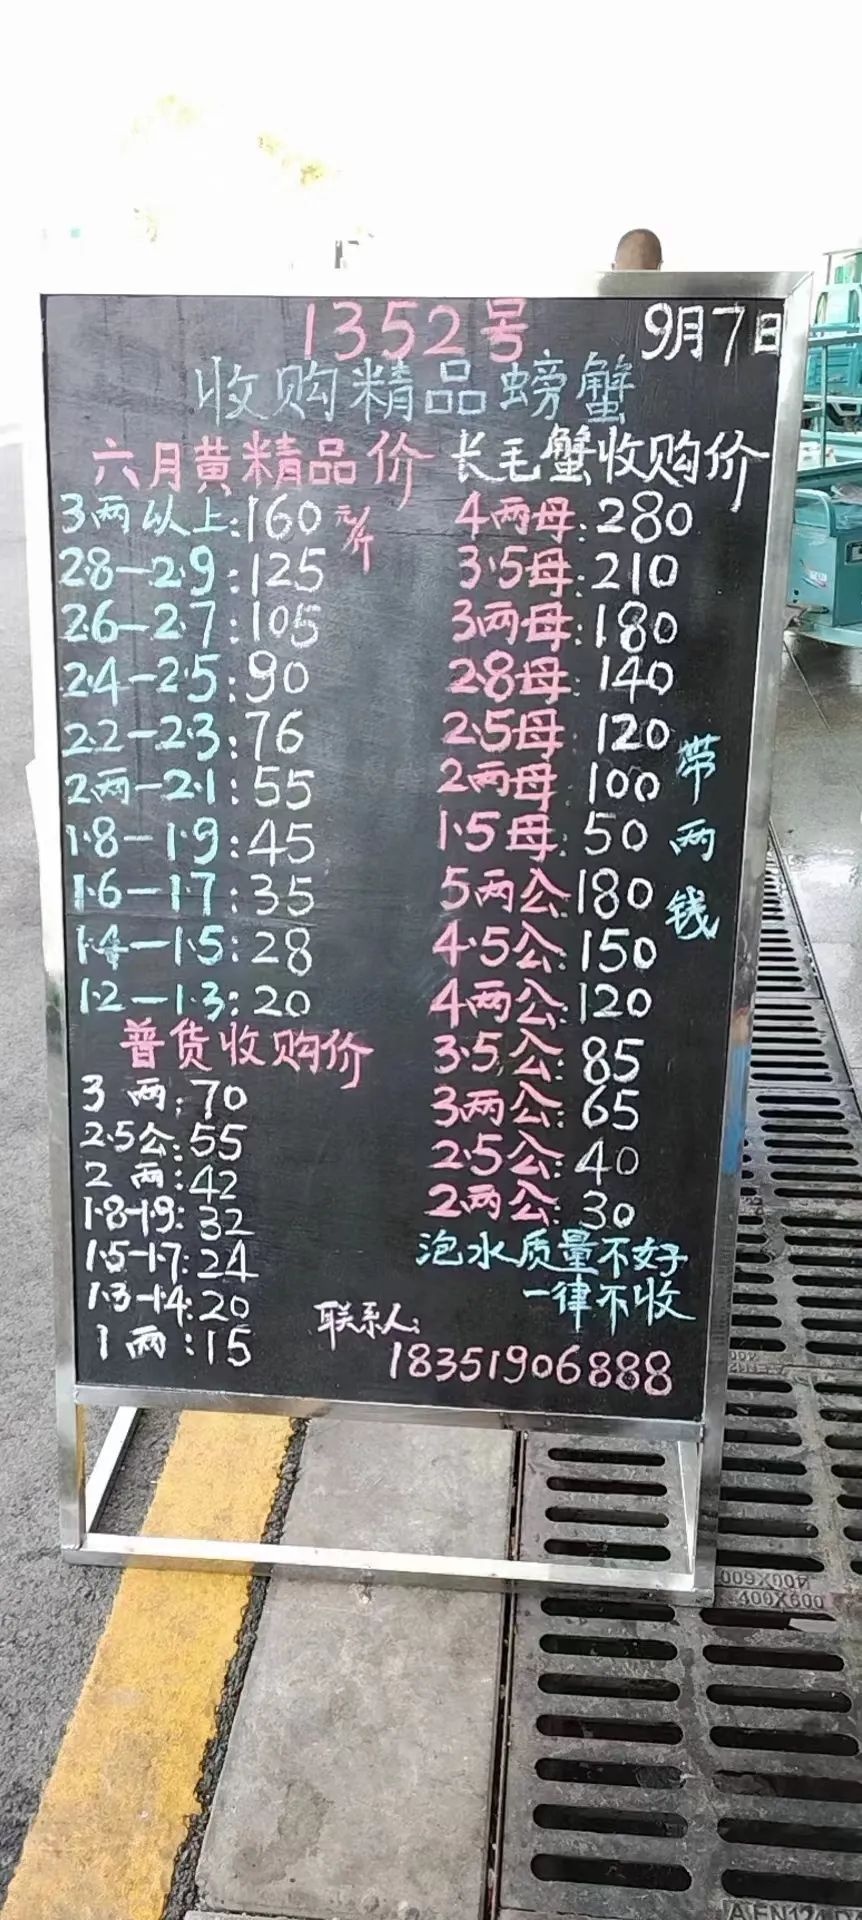 1352号 9月7日
收购精品螃蟹
六月黄精品价
3两以上:160元/斤
28-2.9:125
26-2.7:105
2.4-2.5:90
2.2-2.3:76
2两-2.1:55
1.8-1.9:45
1.6-1.7:35
1.4-1.5:28
1.2-1.3:20
普货收购价
3两:70
2.5公:55
2两:42
1.8-1.9:32
1.5-1.7:24
1.3-1.4:20
1两:15
长毛蟹收购价
4两母:280
3.5母:210
3两母:180
2.8母:140
2.5母:120
2两母:100
1.5母:50
5两公:180
4.5公:150
4两公:120
3.5公:85
3两公:65
2.5公:40
2两公:30
带两钱
泡水质量不好
一律不收
联系人:
18351906888
400X600